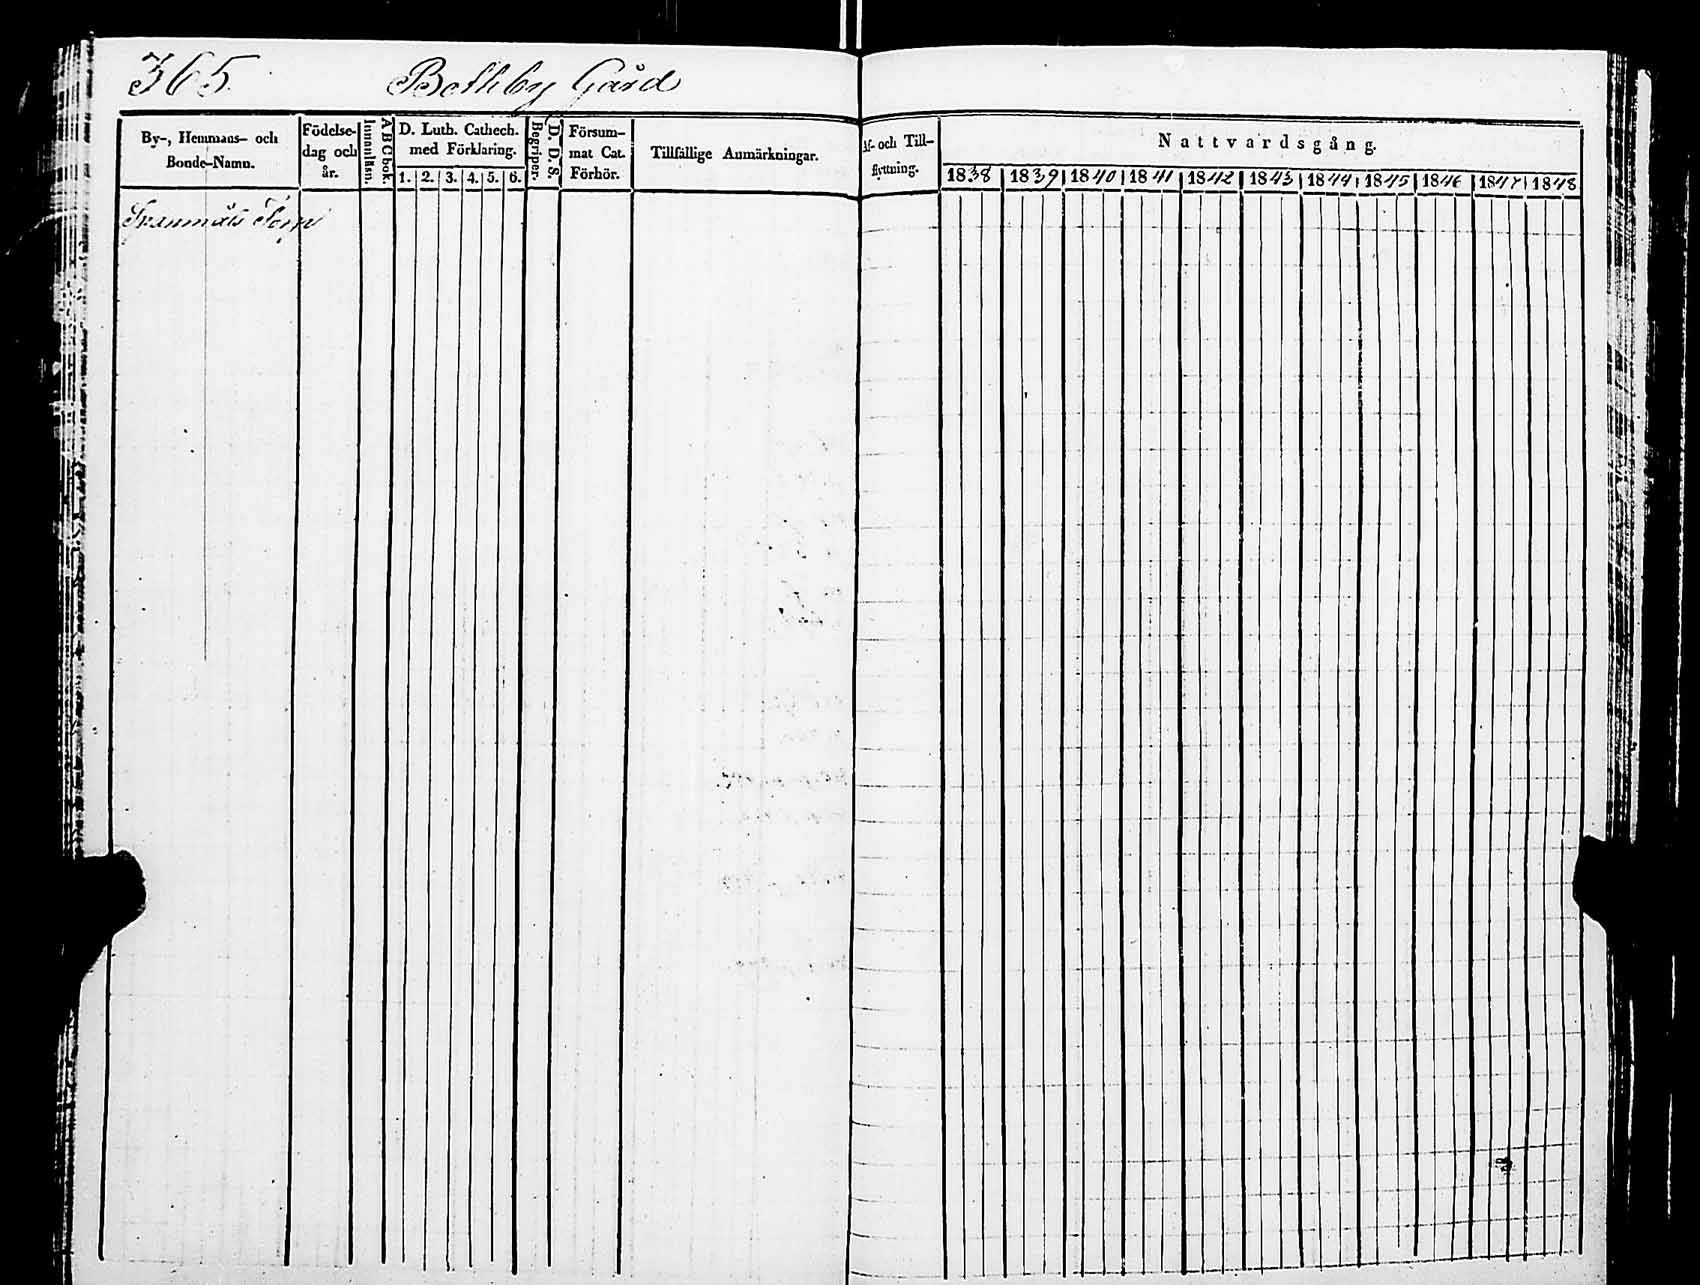 365. Bollby Gård
By-, Hemmans- och
Bonde-Namn.
Födelse-
dag och
år.
A B C bok.
Innanläsn.
D. Luth. Cathech.
med Förklaring.
1. 2. 3. 4. 5. 6.
D. D. S.
Begriper.
Försum-
mat Cat.
Förhör.
Tillfällige Anmärkningar.
Af- och Till-
flyttning.
Nattvardsgång.
1838 1839 1840 1841 1842 1843 1844 1845 1846 1847 1848
Torp